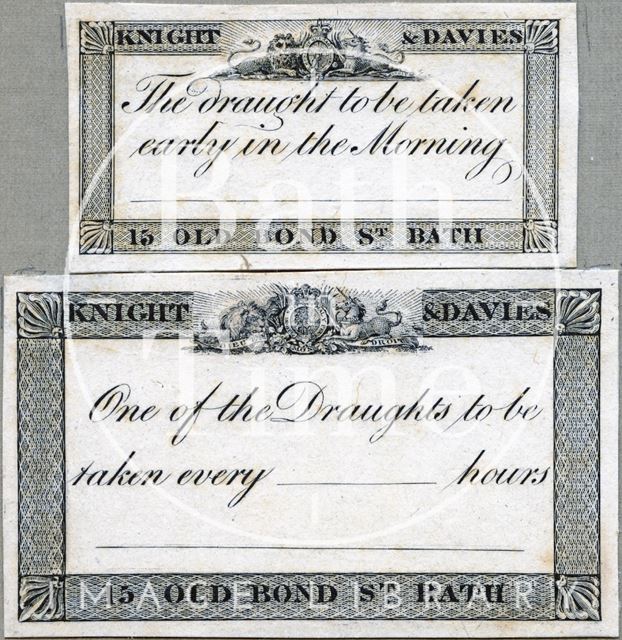 KNIGHT & DAVIES
The draught to be taken
early in the Morning
15 OLD BOND ST BATH
KNIGHT & DAVIES
DROIT
One of the Draughts to be
taken every ________ hours
15 OLD BOND ST BATH
Bath
in
Time
IMAGE LIBRARY